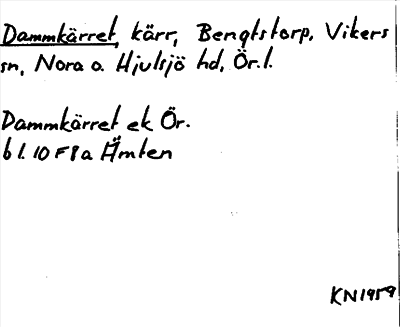 Dammkärret, kärr, Bengtstorp, Vikers
sn, Nora o. Hjulsjö hd, Ör.l.
Dammkärret ek Ör.
bl. 10 F 8 a Ämten
KN1959